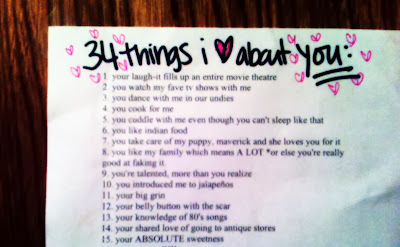 34 things i ♥ about you:
1. your laugh-it fills up an entire movie theatre
2. you watch my fave tv shows with me
3. you dance with me in our undies
4. you cook for me
5. you cuddle with me even though you can't sleep like that
6. you like indian food
7. you take care of my puppy, maverick and she loves you for it
8. you like my family which means A LOT *or else you're really
good at faking it.
9. you're talented, more than you realize
10. you introduced me to jalapeños
11. your big grin
12. your belly button with the scar
13. your knowledge of 80's songs
14. your shared love of going to antique stores
15. your ABSOLUTE sweetness